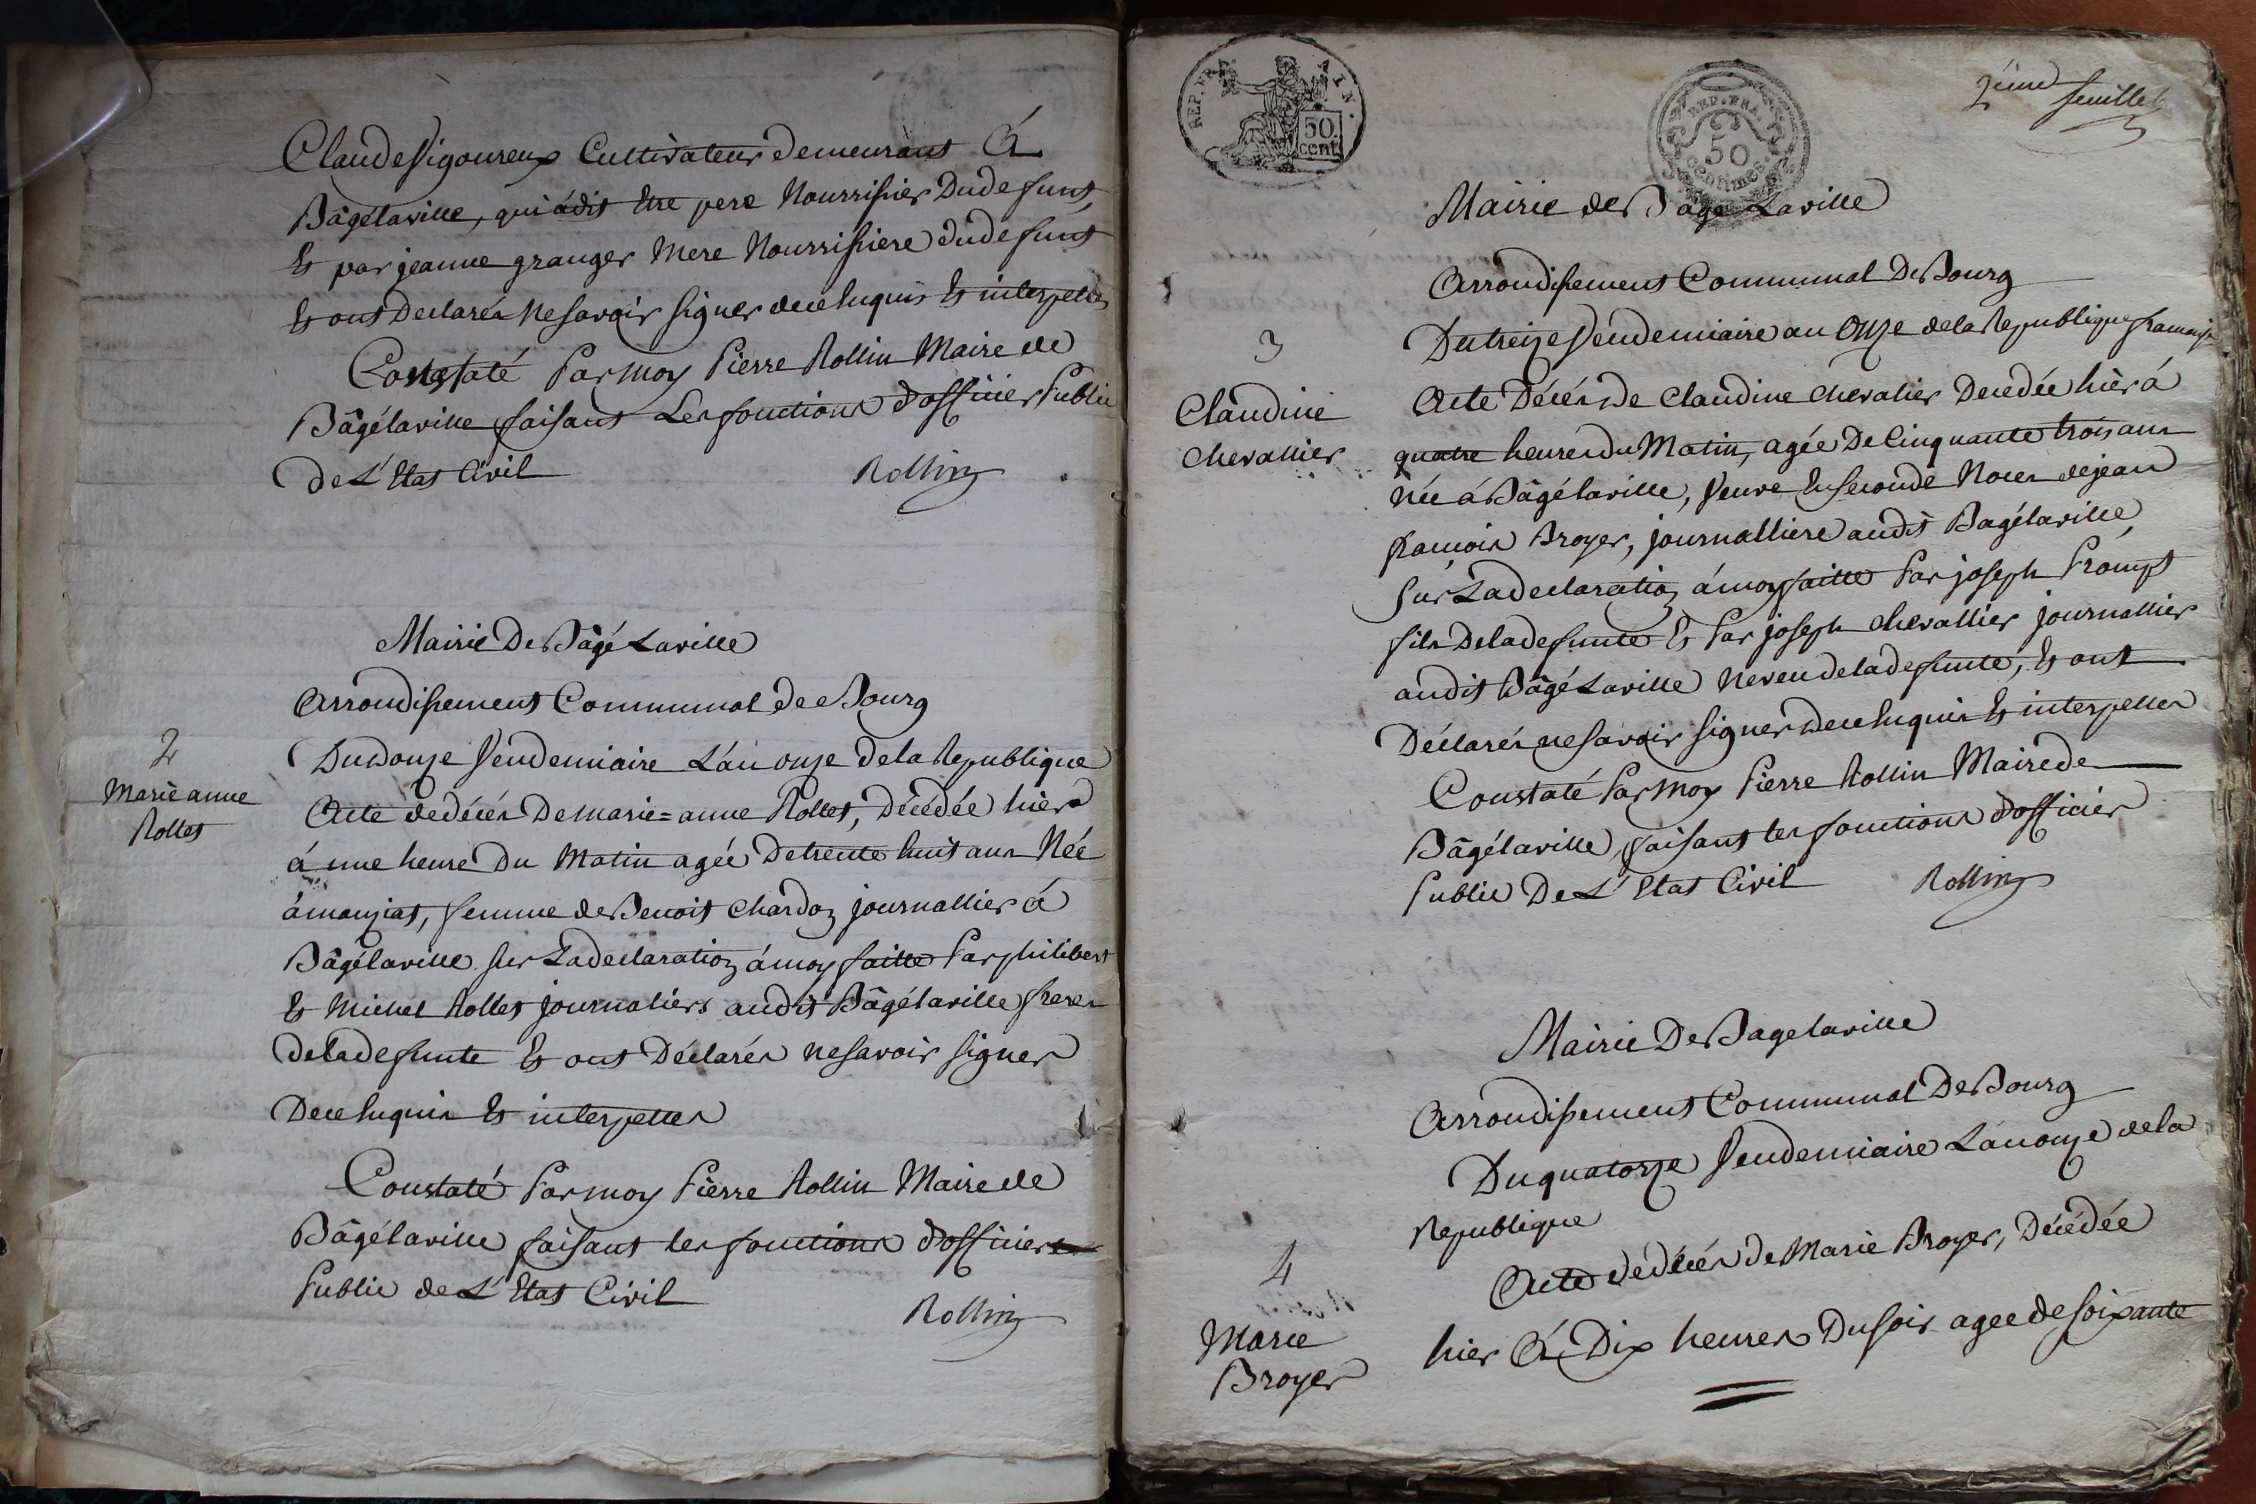 Claude Vigoureux Cultivateur demeurant à
Bâgélaville, qui à dit être pere Nourrissier Du defunt,
Et par jeanne granger Mere Nourrissiere du defunt
Et ont Declarés Ne savoir signer de ce Enquis Et interpellés
Constaté Par Moy Pierre Rollin Maire de
Bâgélaville faisant Les fonctions d'officier Public
de L'Etat Civil
Rollin
Mairie De Bâgé Laville
Arrondissement Communal de Bourg
2
Marie anne
Rollet
Du Douze Vendemiaire L'an onze de la Republique
Acte de décés De marie=anne Rollet, Décédée hier
à une heure Du Matin agée De trente huit ans Née
à manziat, femme de Benoit Chardon journallier à
Bâgélaville sur La declaration à moy faitte Par philibert
Et Michel Rollet journaliers audit Bâgélaville freres
de la defunte Et ont Déclarés ne savoir signer
De ce Enquis Et interpellés
Constaté Par moy Pierre Rollin Maire de
Bâgélaville faisant les fonctions d'officier
Public de L'Etat Civil
Rollin
REP. FRA.
50
cent.
REP. FRA.
50
centimes.
2ème feuillet
Mairie de Bagé Laville
Arrondissement Communal De Bourg
3
Claudine
Chevallier
Du treize Vendemiaire an Onze de la Republique francaise
Acte Décés de Claudine Chevalier Decedée hièr á
quatre heures du Matin, agée De Cinquante trois ans
Née á Bâgélaville, Veuve En seconde Noces de jean
francois Broyer, journalliere audit Bagélaville,
sur La declaration á moy faitte Par joseph Prompt
fils De la defunte Et Par joseph Chevallier journallier
audit Bâgé Laville Neveu de la defunte, Et ont
Déclarés ne savoir signer de ce Enquis Et interpellés
Constaté Par Moy Pierre Rollin Maire de
Bâgélaville, faisant les fonctions d'officier
Public De L'Etat Civil
Rollin
Mairie De Bagelaville
Arrondissement Communal De Bourg
Du quatorze Vendemiaire L'an onze de la
Republique
4
Marie
Broyer
Acte de décés de Marie Broyer, Décédée
hier à Dix heures Du soir agee de soixante